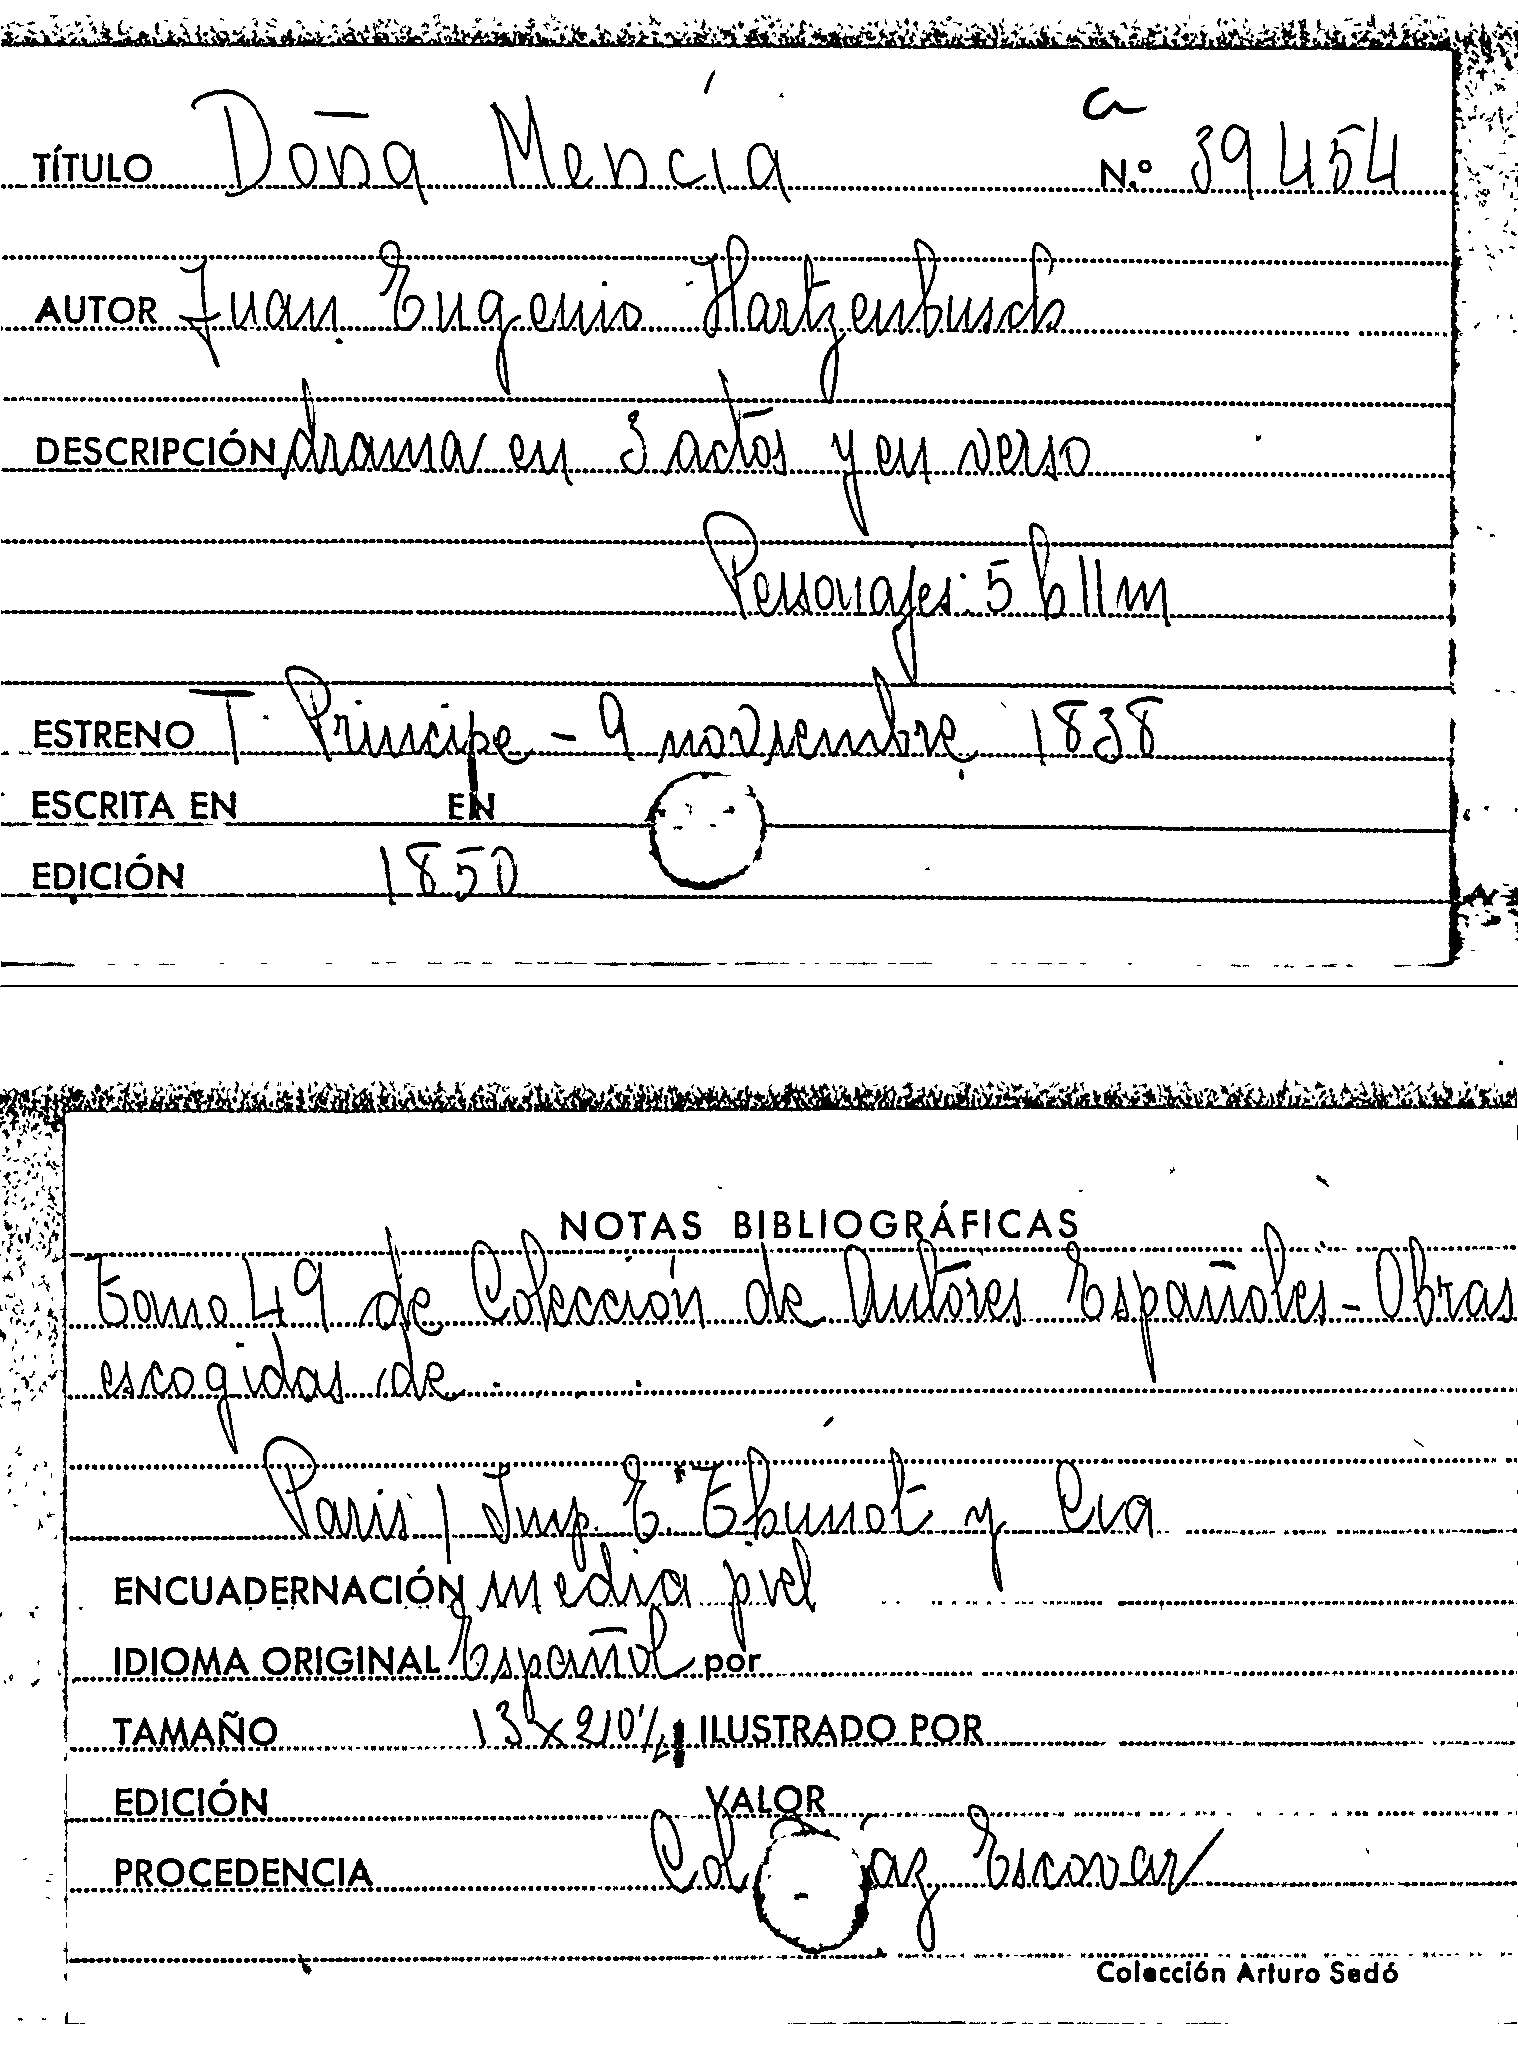 TÍTULO Doña Mencía N.º 39454
AUTOR Juan Eugenio Hartzenbusch
DESCRIPCIÓN drama en 3 actos y en verso
Personajes: 5 h 11 m
ESTRENO T. Príncipe - 9 noviembre 1838
ESCRITA EN EN
EDICIÓN 1850
NOTAS BIBLIOGRÁFICAS
Tomo 49 de Colección de Autores Españoles - Obras
escogidas de
Paris / Imp. E. Thunot y Cia
ENCUADERNACIÓN media piel
IDIOMA ORIGINAL Español por
TAMAÑO ILUSTRADO POR
EDICIÓN VALOR
PROCEDENCIA Col az Escovar
Colección Arturo Sedó